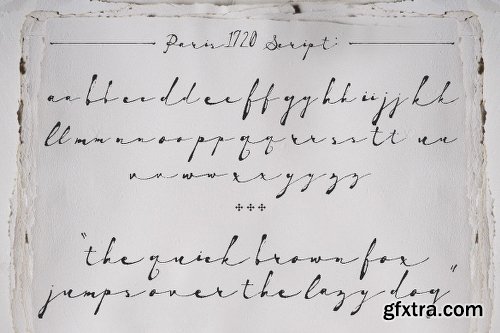 Paris 1720 Script:
aa bb cc dd ee ff gg hh ii jj kk
ll mm nn oo pp qq rr ss tt uu
vv ww xx yy zz
"the quick brown fox
jumps over the lazy dog"
gfxtra.com